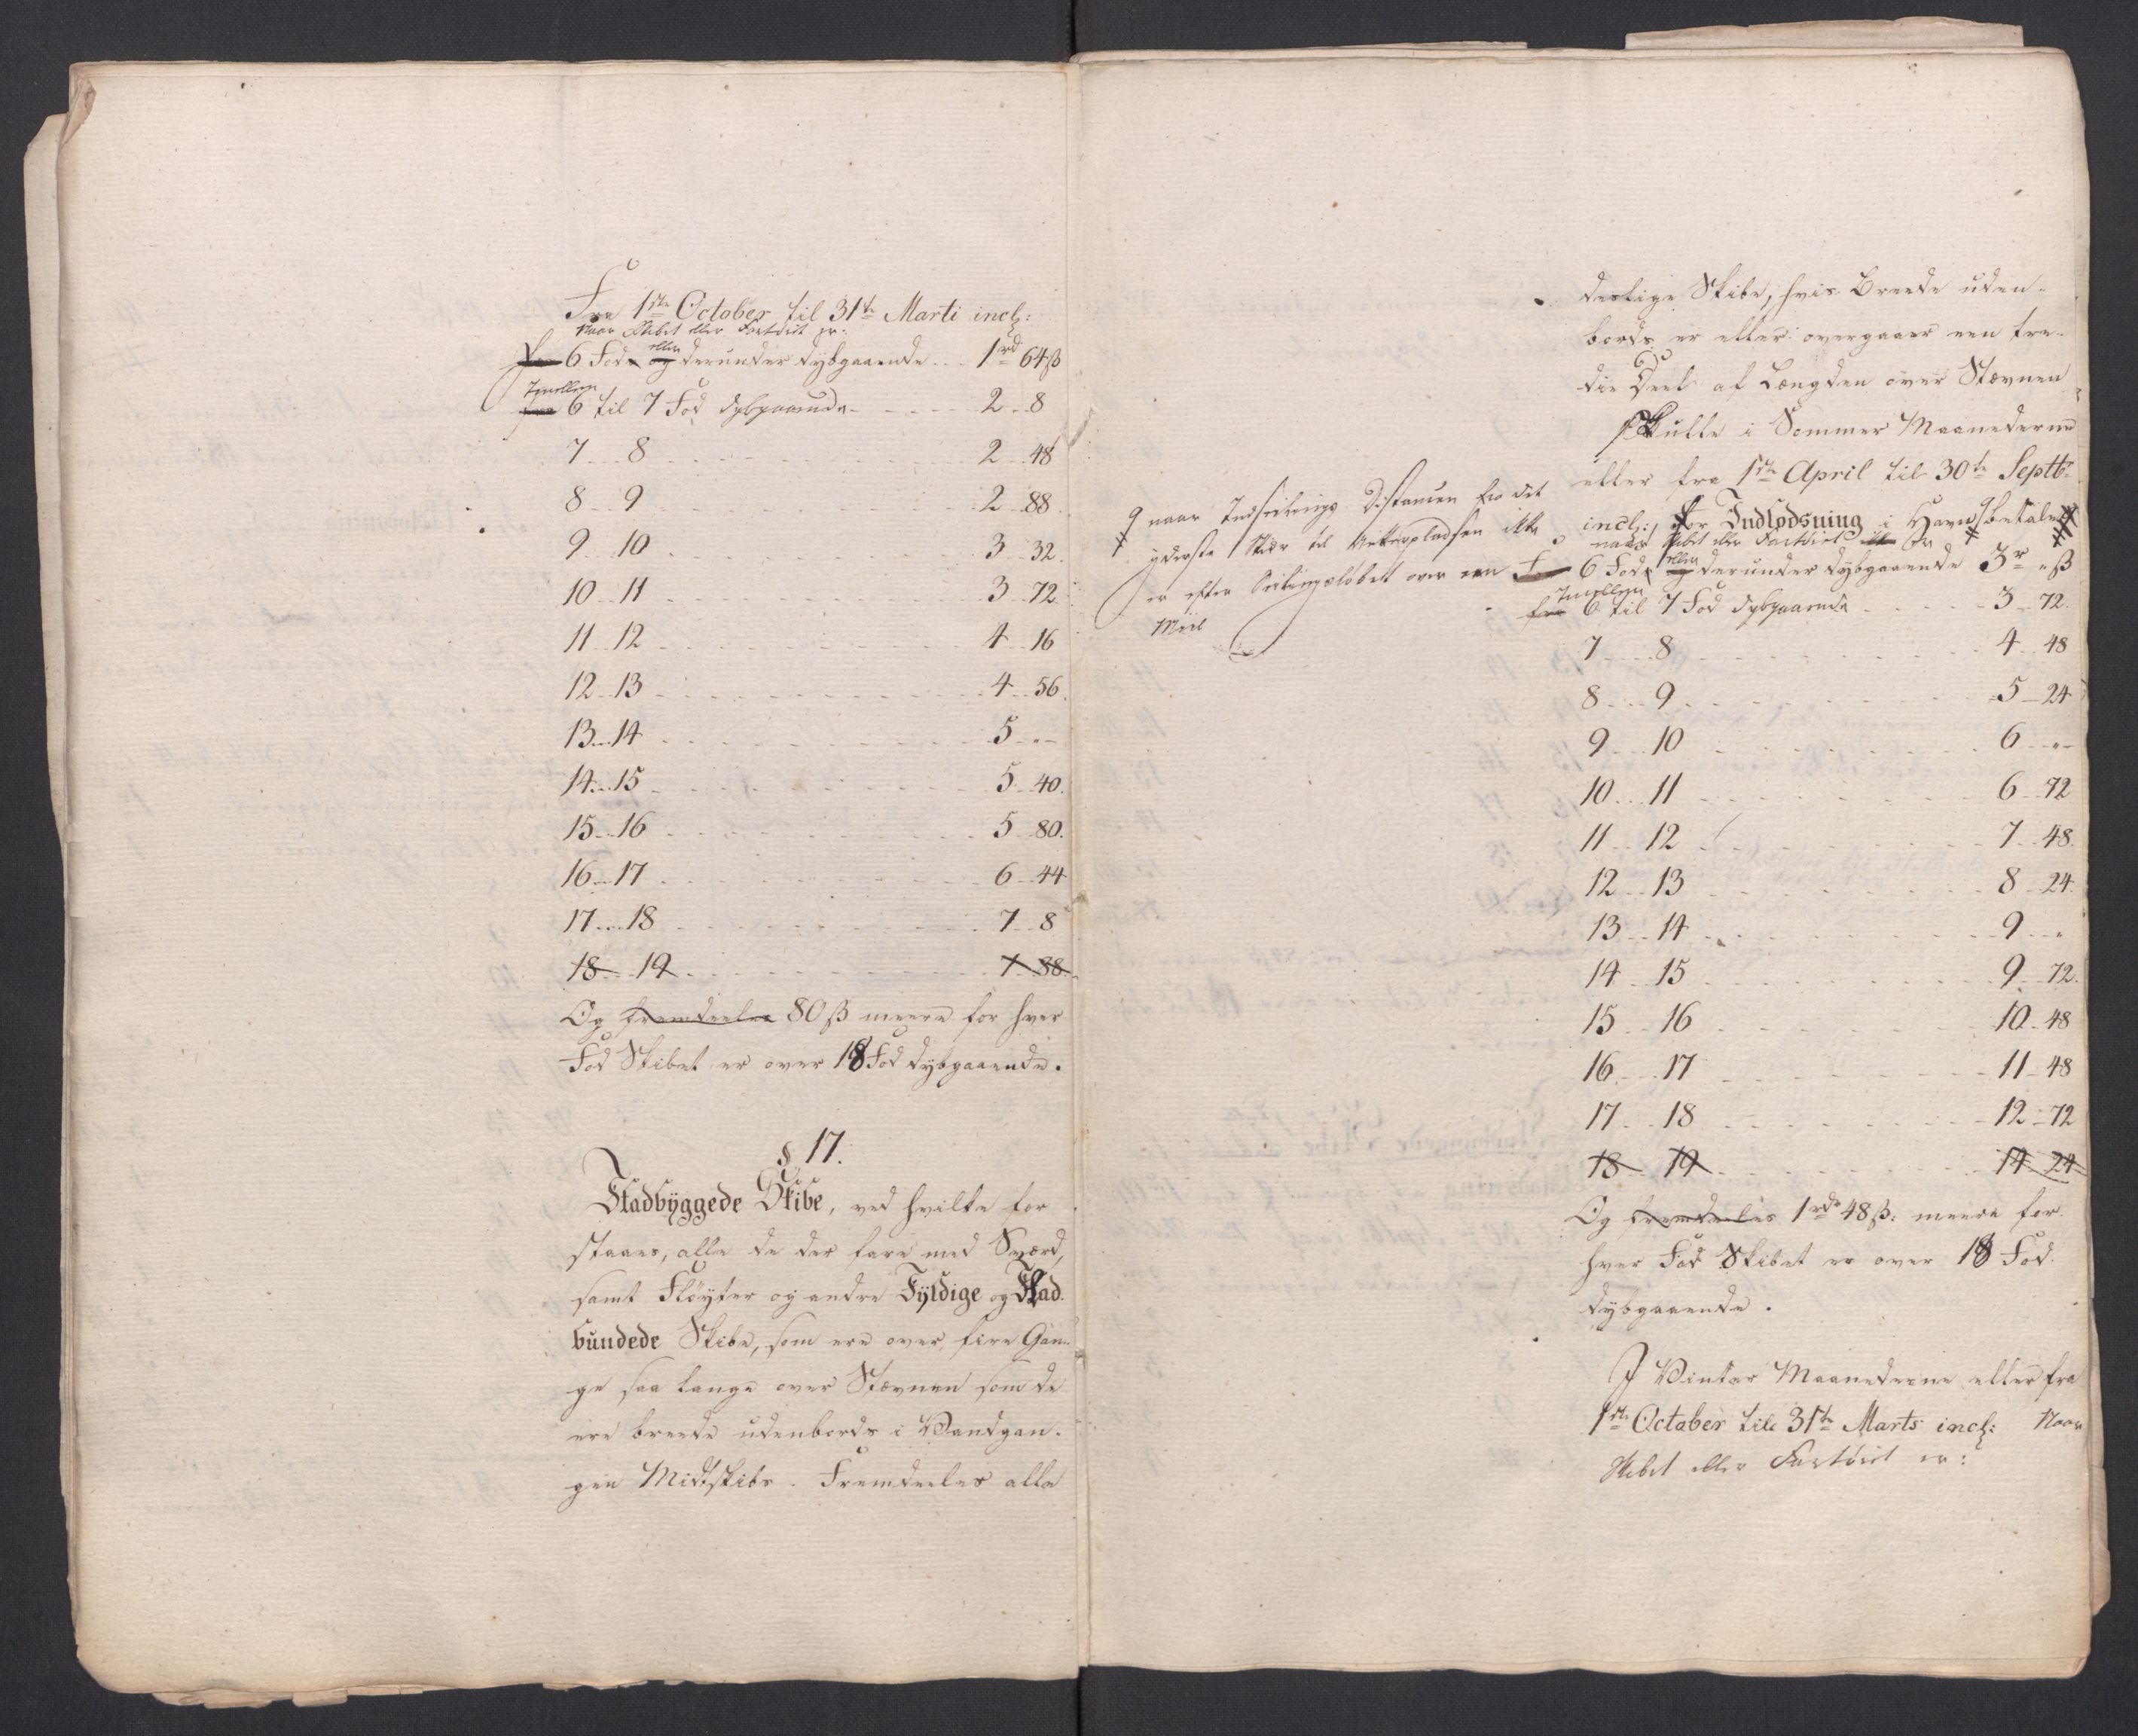 Fra 1ste October til 31te Marti incl:
Naar Skibet eller Fartöiet er:
for 6 Fod og eller derunder dybgaaende ... 1rd 64ß
fra Imellem 6 til 7 Fod dybgaaende - - - - 2 - 8
7 - 8 - - - 2 - 48
8 - 9 - - - 2 - 88
9 - 10 - - - 3 - 32
10 - 11 - - - 3 - 72
11 - 12 - - - 4 - 16
12 - 13 - - - 4 - 56
13 - 14 - - - 5 - "-
14 - 15 - - - 5 - 40
15 - 16 - - - 5 - 80
16 - 17 - - - 6 - 44
17 - 18 - - - 7 - 8
18 - 19 - - - 7 - 88
Og fremdeeles 80ß meere for hver
Fod Skibet er over 18 Fod dybgaaende.
§ 17.
Fladbyggede Skibe, ved hvilke for
staaes, alle de der fare med Sværd,
samt Flöyter og andre Fyldige og Flad
bundede Skibe, som ere over fire Gan-
ge saa lange over Stævnen som de
ere breede udenbords i Vandgan-
gen Midtskibs. Fremdeeles alle
deslige Skibe, hvis Breede uden-
bords er eller overgaaer een tre-
die Deel af Længden over Stævnen
skulle i Sommer Maanederne
eller fra 1ste April til 30te Septbr
incl: for Indlodsning i Havn betale
naar Skibet eller Fartöiet er
naar Indseilings Distancen fra det
yderste Skiær til Ankerpladsen ikke
er efter Seilingslöbet over een
Miil
For 6 Fod og eller derunder dybgaaende 3r "ß
fra Imellem 6 til 7 Fod dybgaaende - - - 3 - 72
7 - 8 - - - 4 - 48
8 - 9 - - - 5 - 24
9 - 10 - - - 6 - "-
10 - 11 - - - 6 - 72
11 - 12 - - - 7 - 48
12 - 13 - - - 8 - 24
13 - 14 - - - 9 - "
14 - 15 - - - 9 - 72
15 - 16 - - - 10 - 48
16 - 17 - - - 11 - 48
17 - 18 - - - 12 - 72
18 - 19 - - - 14 - 24
Og fremdeeles 1rdr 48ß: meere for
hver Fod Skibet er over 18 Fod
dybgaaende.
I Vinter Maanederne eller fra
1ste October til 31te Marts incl: Naar
Skibet eller Fartöiet er: